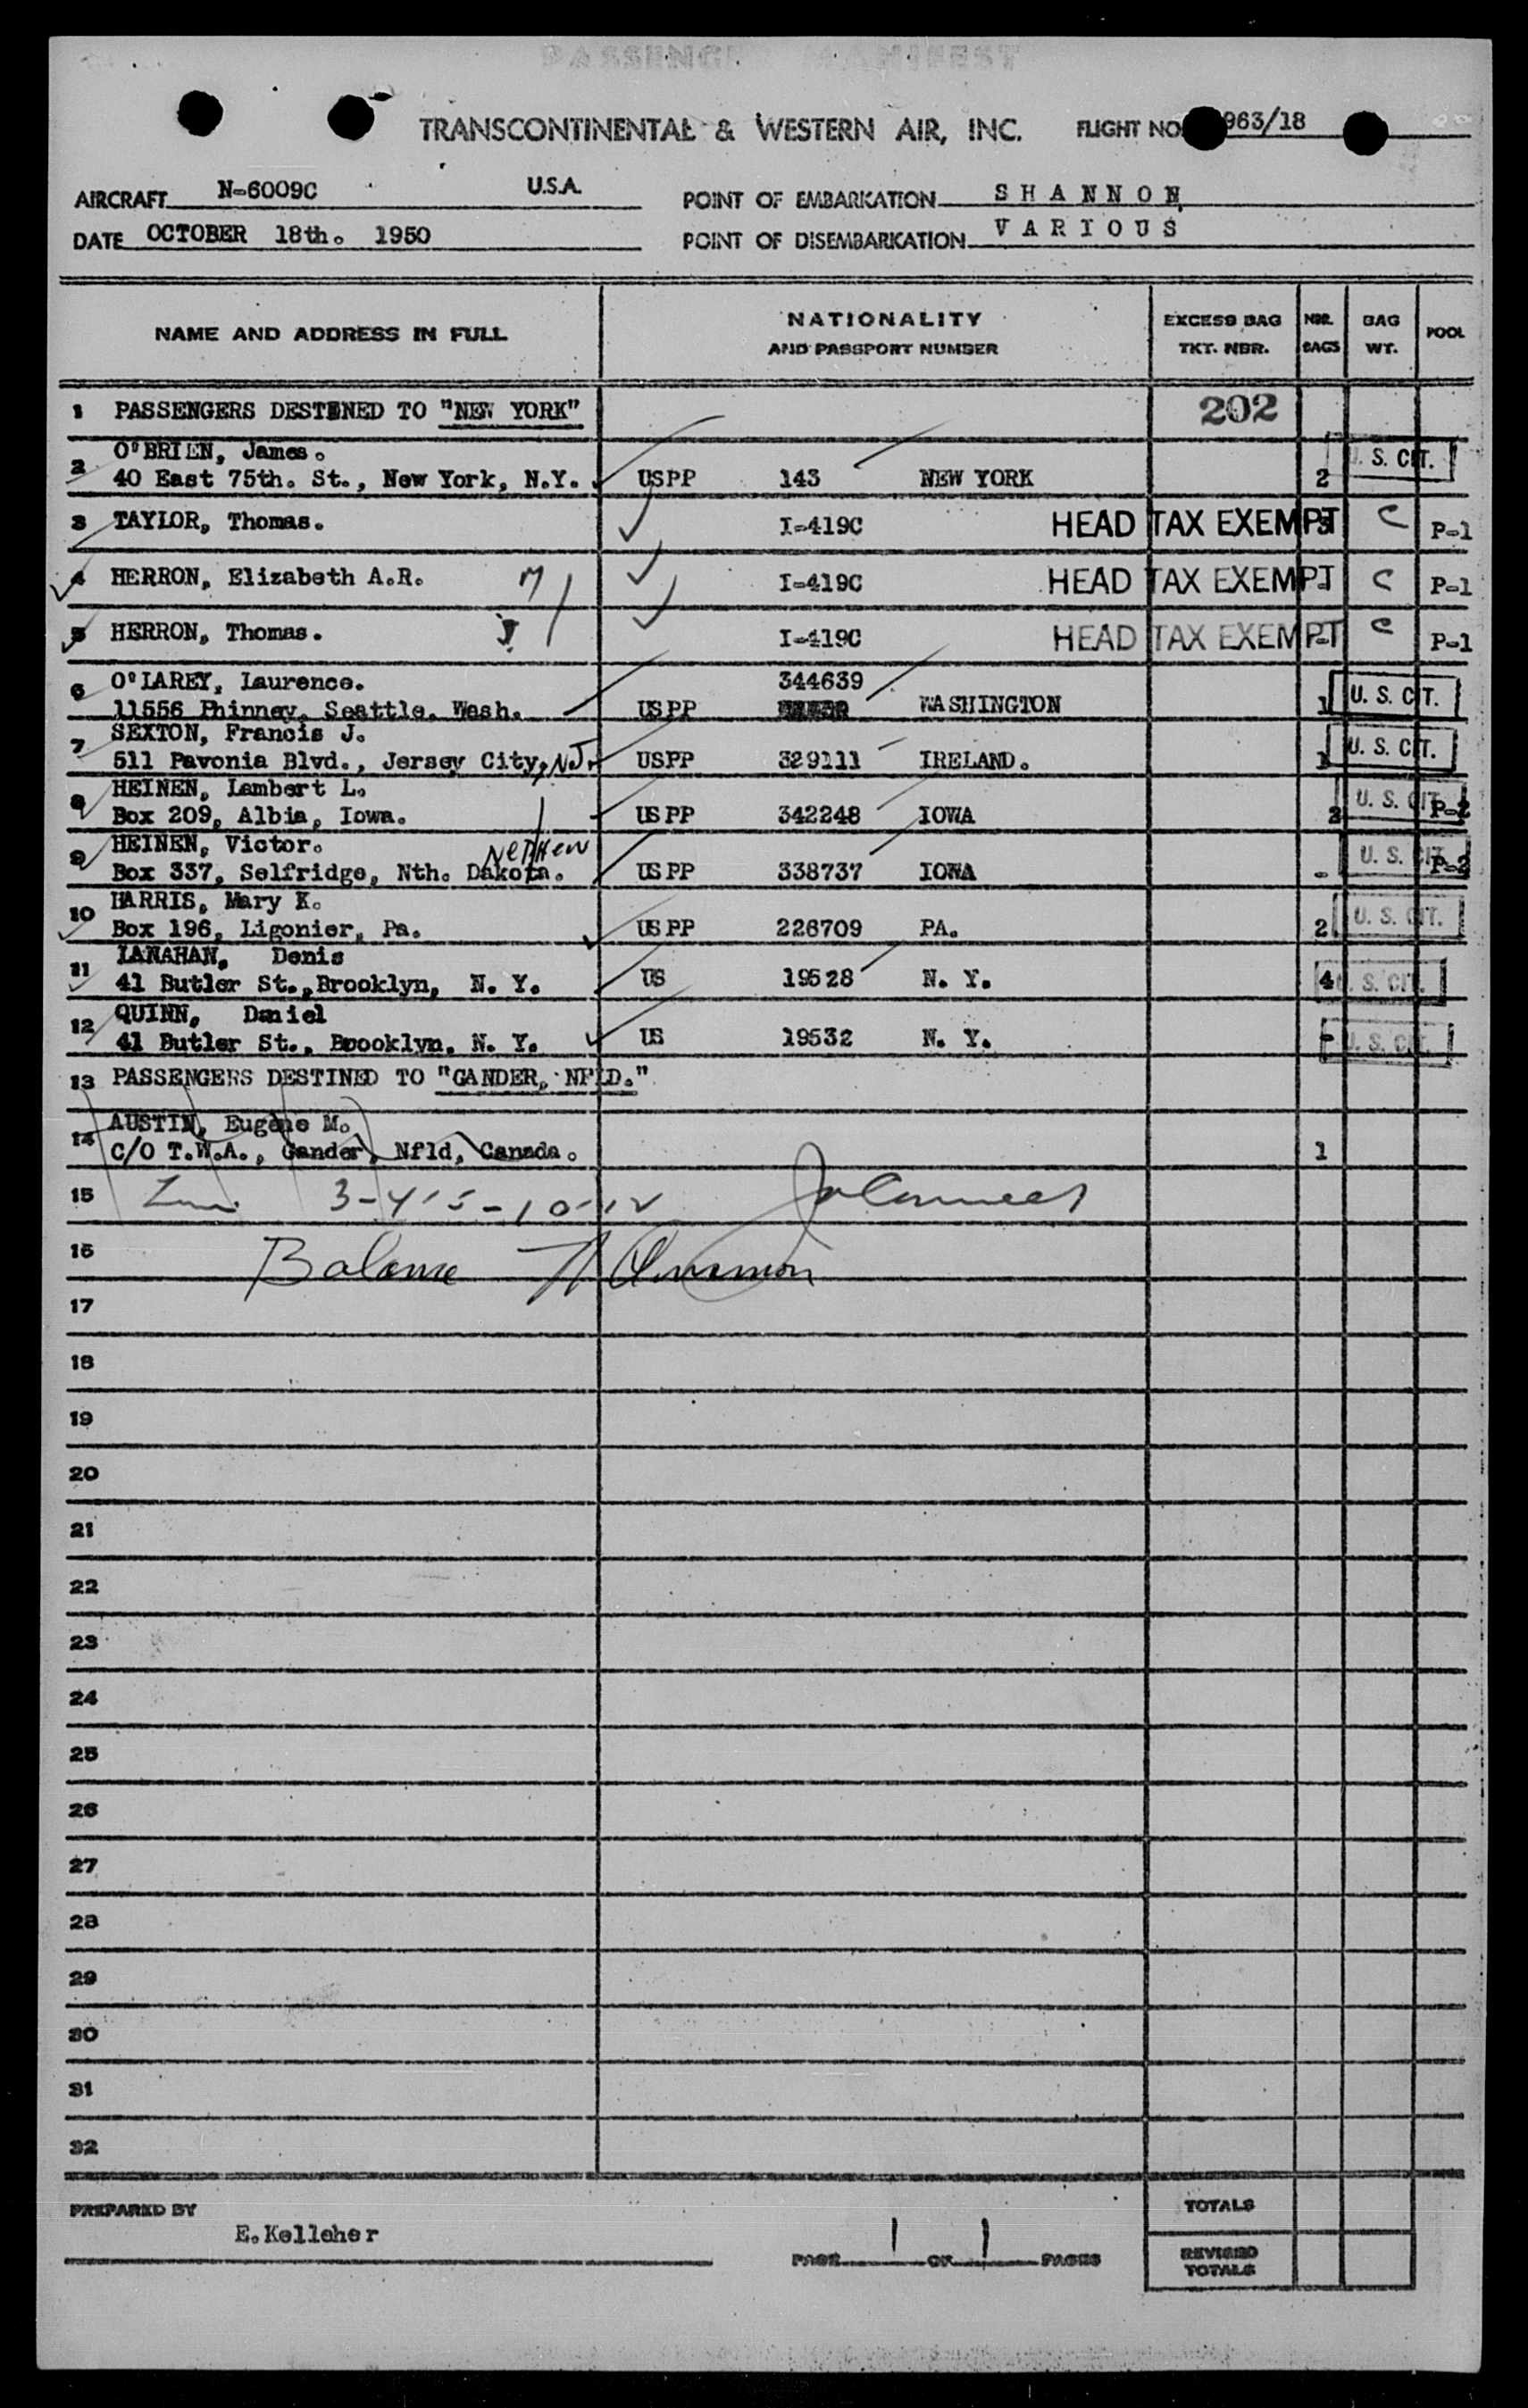 PASSENGER MANIFEST
TRANSCONTINENTAL & WESTERN AIR, INC. FLIGHT NO. 963/18
AIRCRAFT N-6009C U.S.A. POINT OF EMBARKATION S H A N N O N
DATE OCTOBER 18th. 1950 POINT OF DISEMBARKATION V A R I O U S
NAME AND ADDRESS IN FULL NATIONALITY AND PASSPORT NUMBER EXCESS BAG TKT. NBR. NBR. BAGS BAG WT. POOL
1 PASSENGERS DESTINED TO "NEW YORK" 202
2 O'BRIEN, James.
40 East 75th. St., New York, N.Y. USPP 143 NEW YORK 2 U. S. CIT.
3 TAYLOR, Thomas. I-419C HEAD TAX EXEMPT C P-1
4 HERRON, Elizabeth A.R. I-419C HEAD TAX EXEMPT C P-1
5 HERRON, Thomas. I-419C HEAD TAX EXEMPT C P-1
6 O'LAREY, Laurence. 344639
11556 Phinney, Seattle. Wash. USPP WASHINGTON 1 U. S. CIT.
7 SEXTON, Francis J.
511 Pavonia Blvd., Jersey City, N.J. USPP 329111 IRELAND. 1 U. S. CIT.
8 HEINEN, Lambert L.
Box 209, Albia, Iowa. USPP 342248 IOWA 2 U. S. CIT. P-2
9 HEINEN, Victor. Nephew
Box 337, Selfridge, Nth. Dakota. USPP 338737 IOWA - U. S. CIT. P-2
10 HARRIS, Mary K.
Box 196, Ligonier, Pa. USPP 226709 PA. 2 U. S. CIT.
11 LANAHAN, Denis
41 Butler St., Brooklyn, N. Y. US 19528 N. Y. 4 U. S. CIT.
12 QUINN, Daniel
41 Butler St., Brooklyn. N. Y. US 19532 N. Y. - U. S. CIT.
13 PASSENGERS DESTINED TO "GANDER, NFLD."
14 AUSTIN, Eugene M.
C/O T.W.A., Gander, Nfld, Canada. 1
15 3-4-5-10-12
16 Balance
17
18
19
20
21
22
23
24
25
26
27
28
29
30
31
32
PREPARED BY E.Kelleher
PAGE 1 OF 1 PAGES
TOTALS
REVISED TOTALS